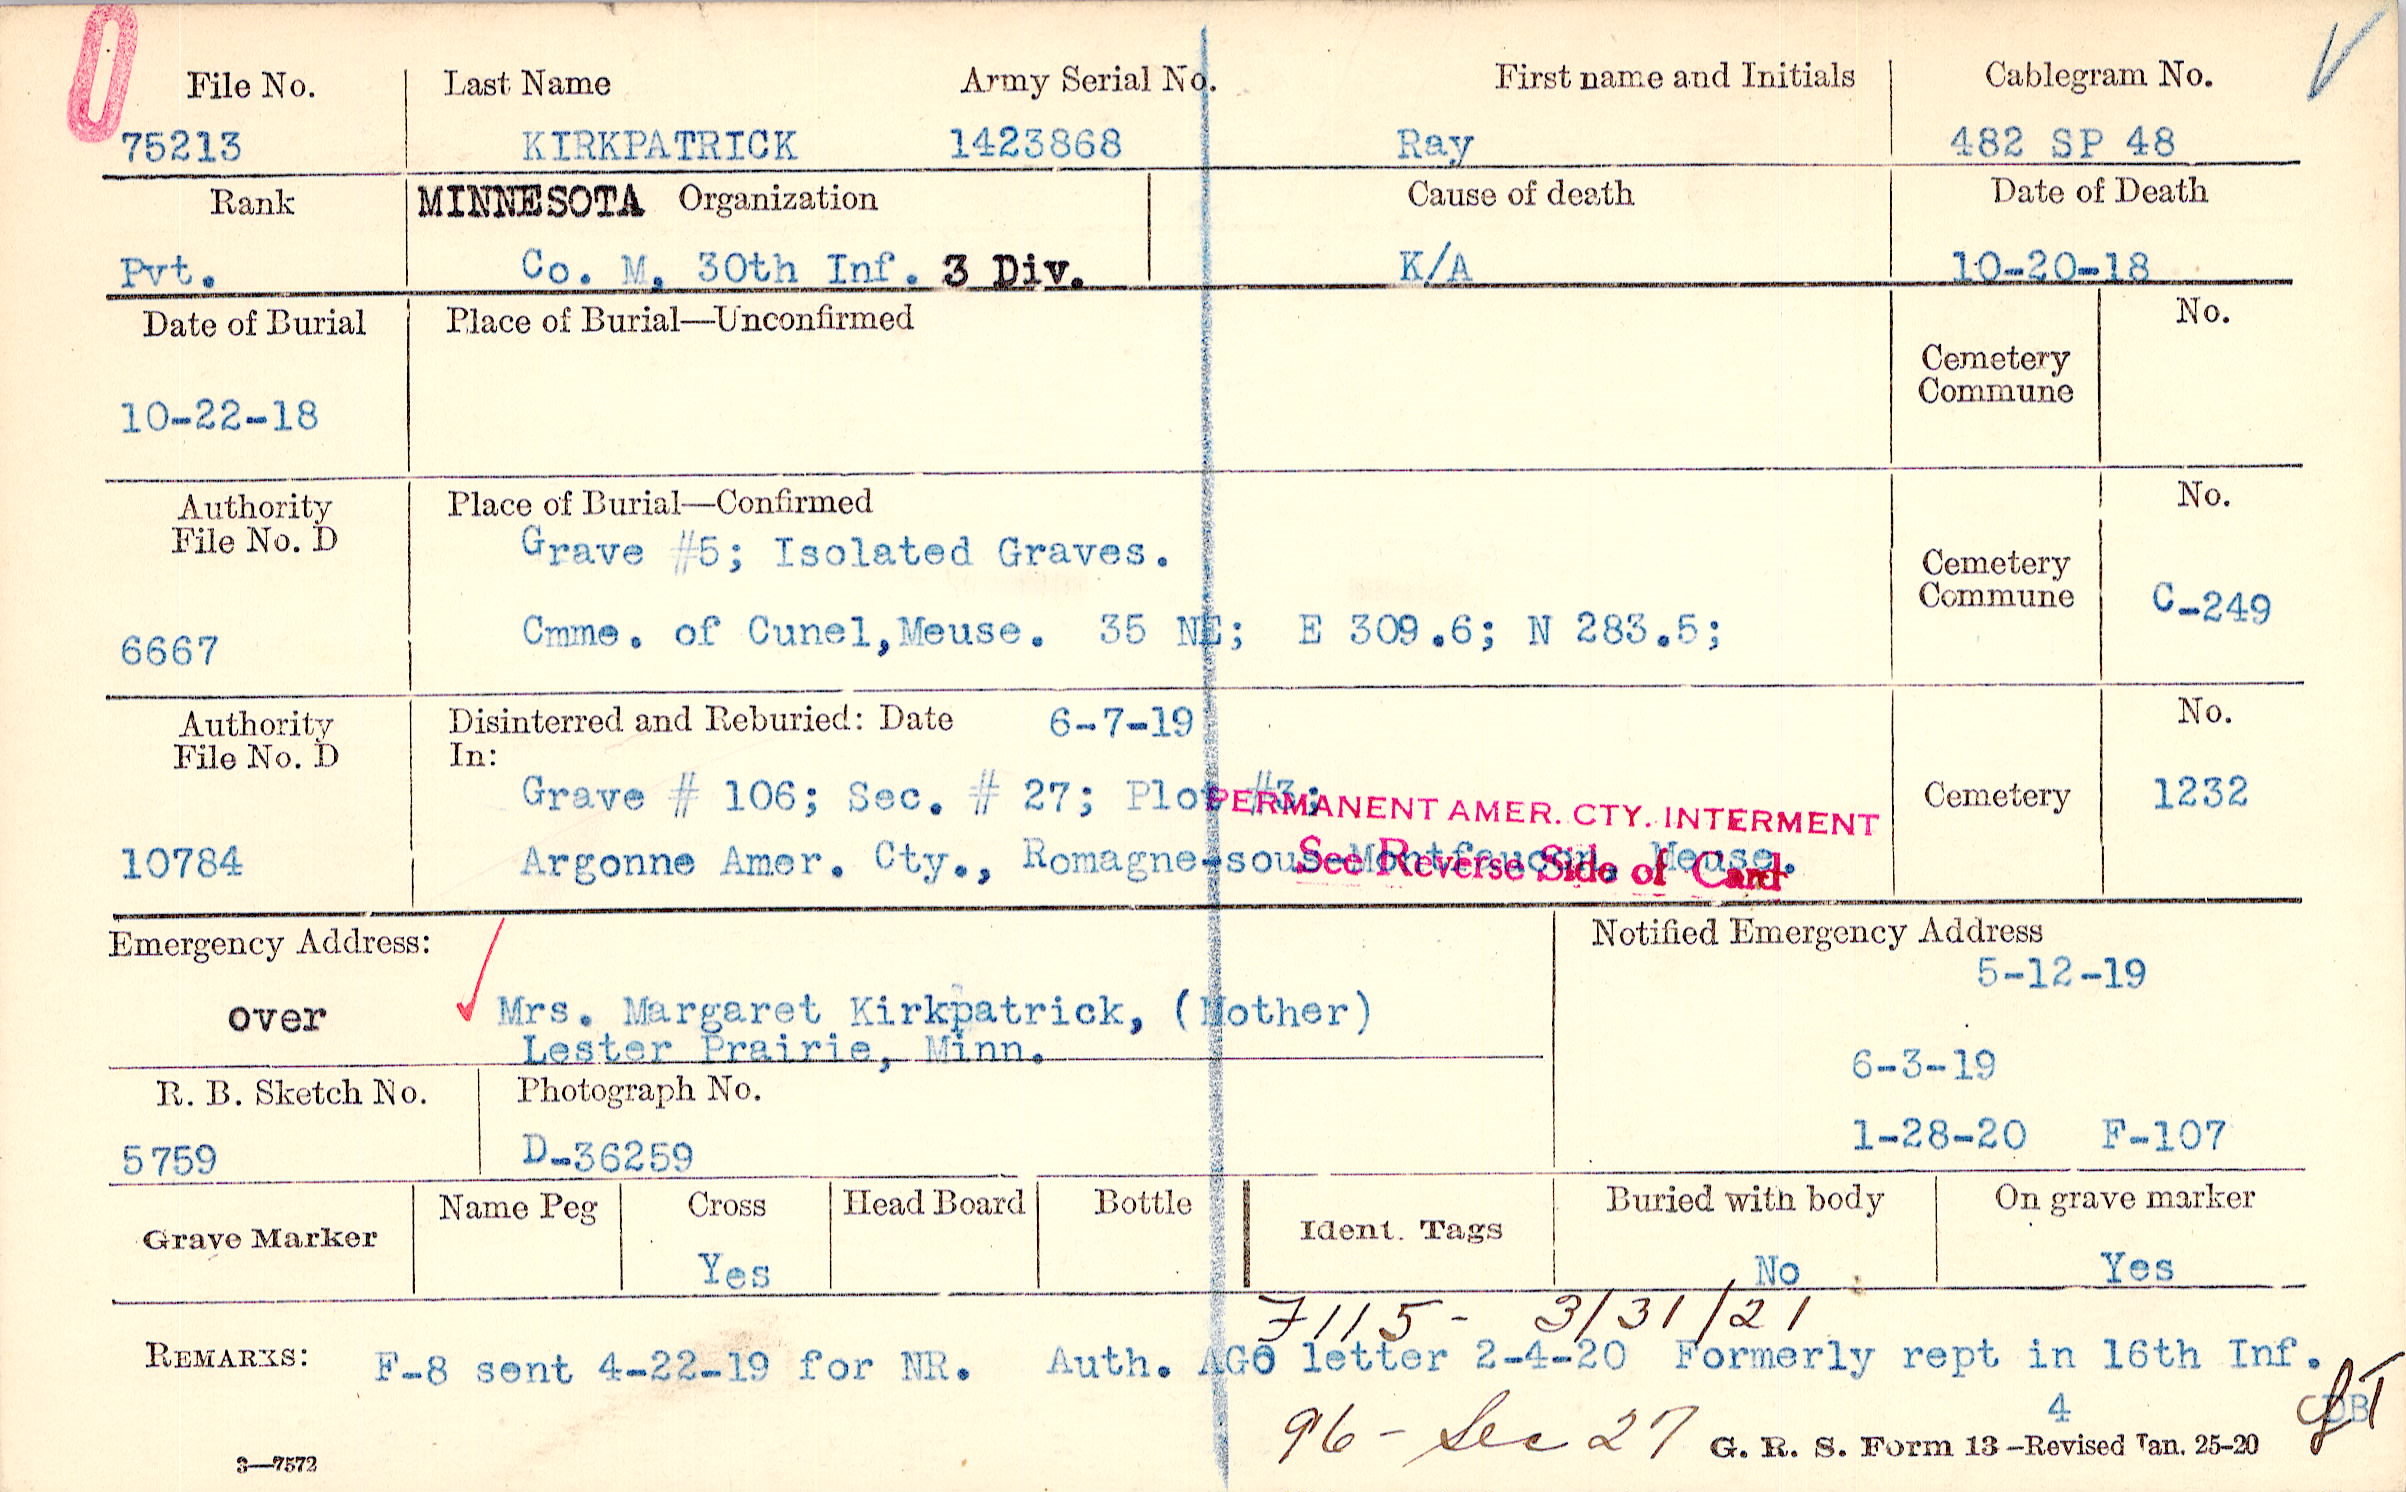 File No. Last Name Army Serial No. First name and Initials Cablegram No.
75213 KIRKPATRICK 1423868 Ray 482 SP 48
Rank MINNESOTA Organization Cause of death Date of Death
Pvt. Co. M, 30th Inf. 3 Div. K/A 10-20-18
Date of Burial Place of Burial—Unconfirmed No.
Cemetery
Commune
10-22-18
Authority Place of Burial—Confirmed No.
File No. D Grave #5; Isolated Graves.
Cemetery
Commune C-249
6667 Cmme. of Cunel,Meuse. 35 NE; E 309.6; N 283.5;
Authority Disinterred and Reburied: Date 6-7-19 No.
File No. D In:
Grave # 106; Sec. # 27; Plot #3; Cemetery 1232
PERMANENT AMER. CTY. INTERMENT
10784 Argonne Amer. Cty., Romagne-sous-Montfaucon, Meuse.
See Reverse Side of Card
Emergency Address: Notified Emergency Address
5-12-19
over Mrs. Margaret Kirkpatrick, (Mother)
Lester Prairie, Minn.
6-3-19
R. B. Sketch No. Photograph No.
5759 D-36259 1-28-20 F-107
Grave Marker Name Peg Cross Head Board Bottle Ident. Tags Buried with body On grave marker
Yes No Yes
7115- 3/31/21
REMARKS: F-8 sent 4-22-19 for NR. Auth. AGO letter 2-4-20 Formerly rept in 16th Inf.
4
96- Sec 27 G. R. S. Form 13-Revised Jan. 25-20
3—7572